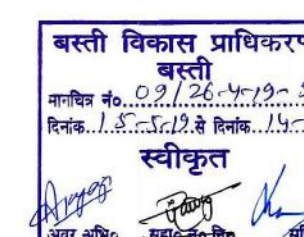 बस्ती विकास प्राधिकरण
बस्ती
मानचित्र नं० 09/26-4-19-
दिनांक 15-5-19 से दिनांक 14-
स्वीकृत
अवर अभि०